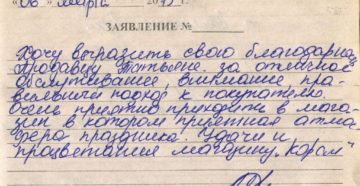 «06» марта
ЗАЯВЛЕНИЕ №
Хочу выразить свою благодарнос
продавцу Татьяне за отличное
обслуживание, внимание пра-
вильный подход к покупателю
Очень приятно приходить в мага-
зин в котором приятная атмо
сфера праздника. Удачи и
процветания магазину "Корал"